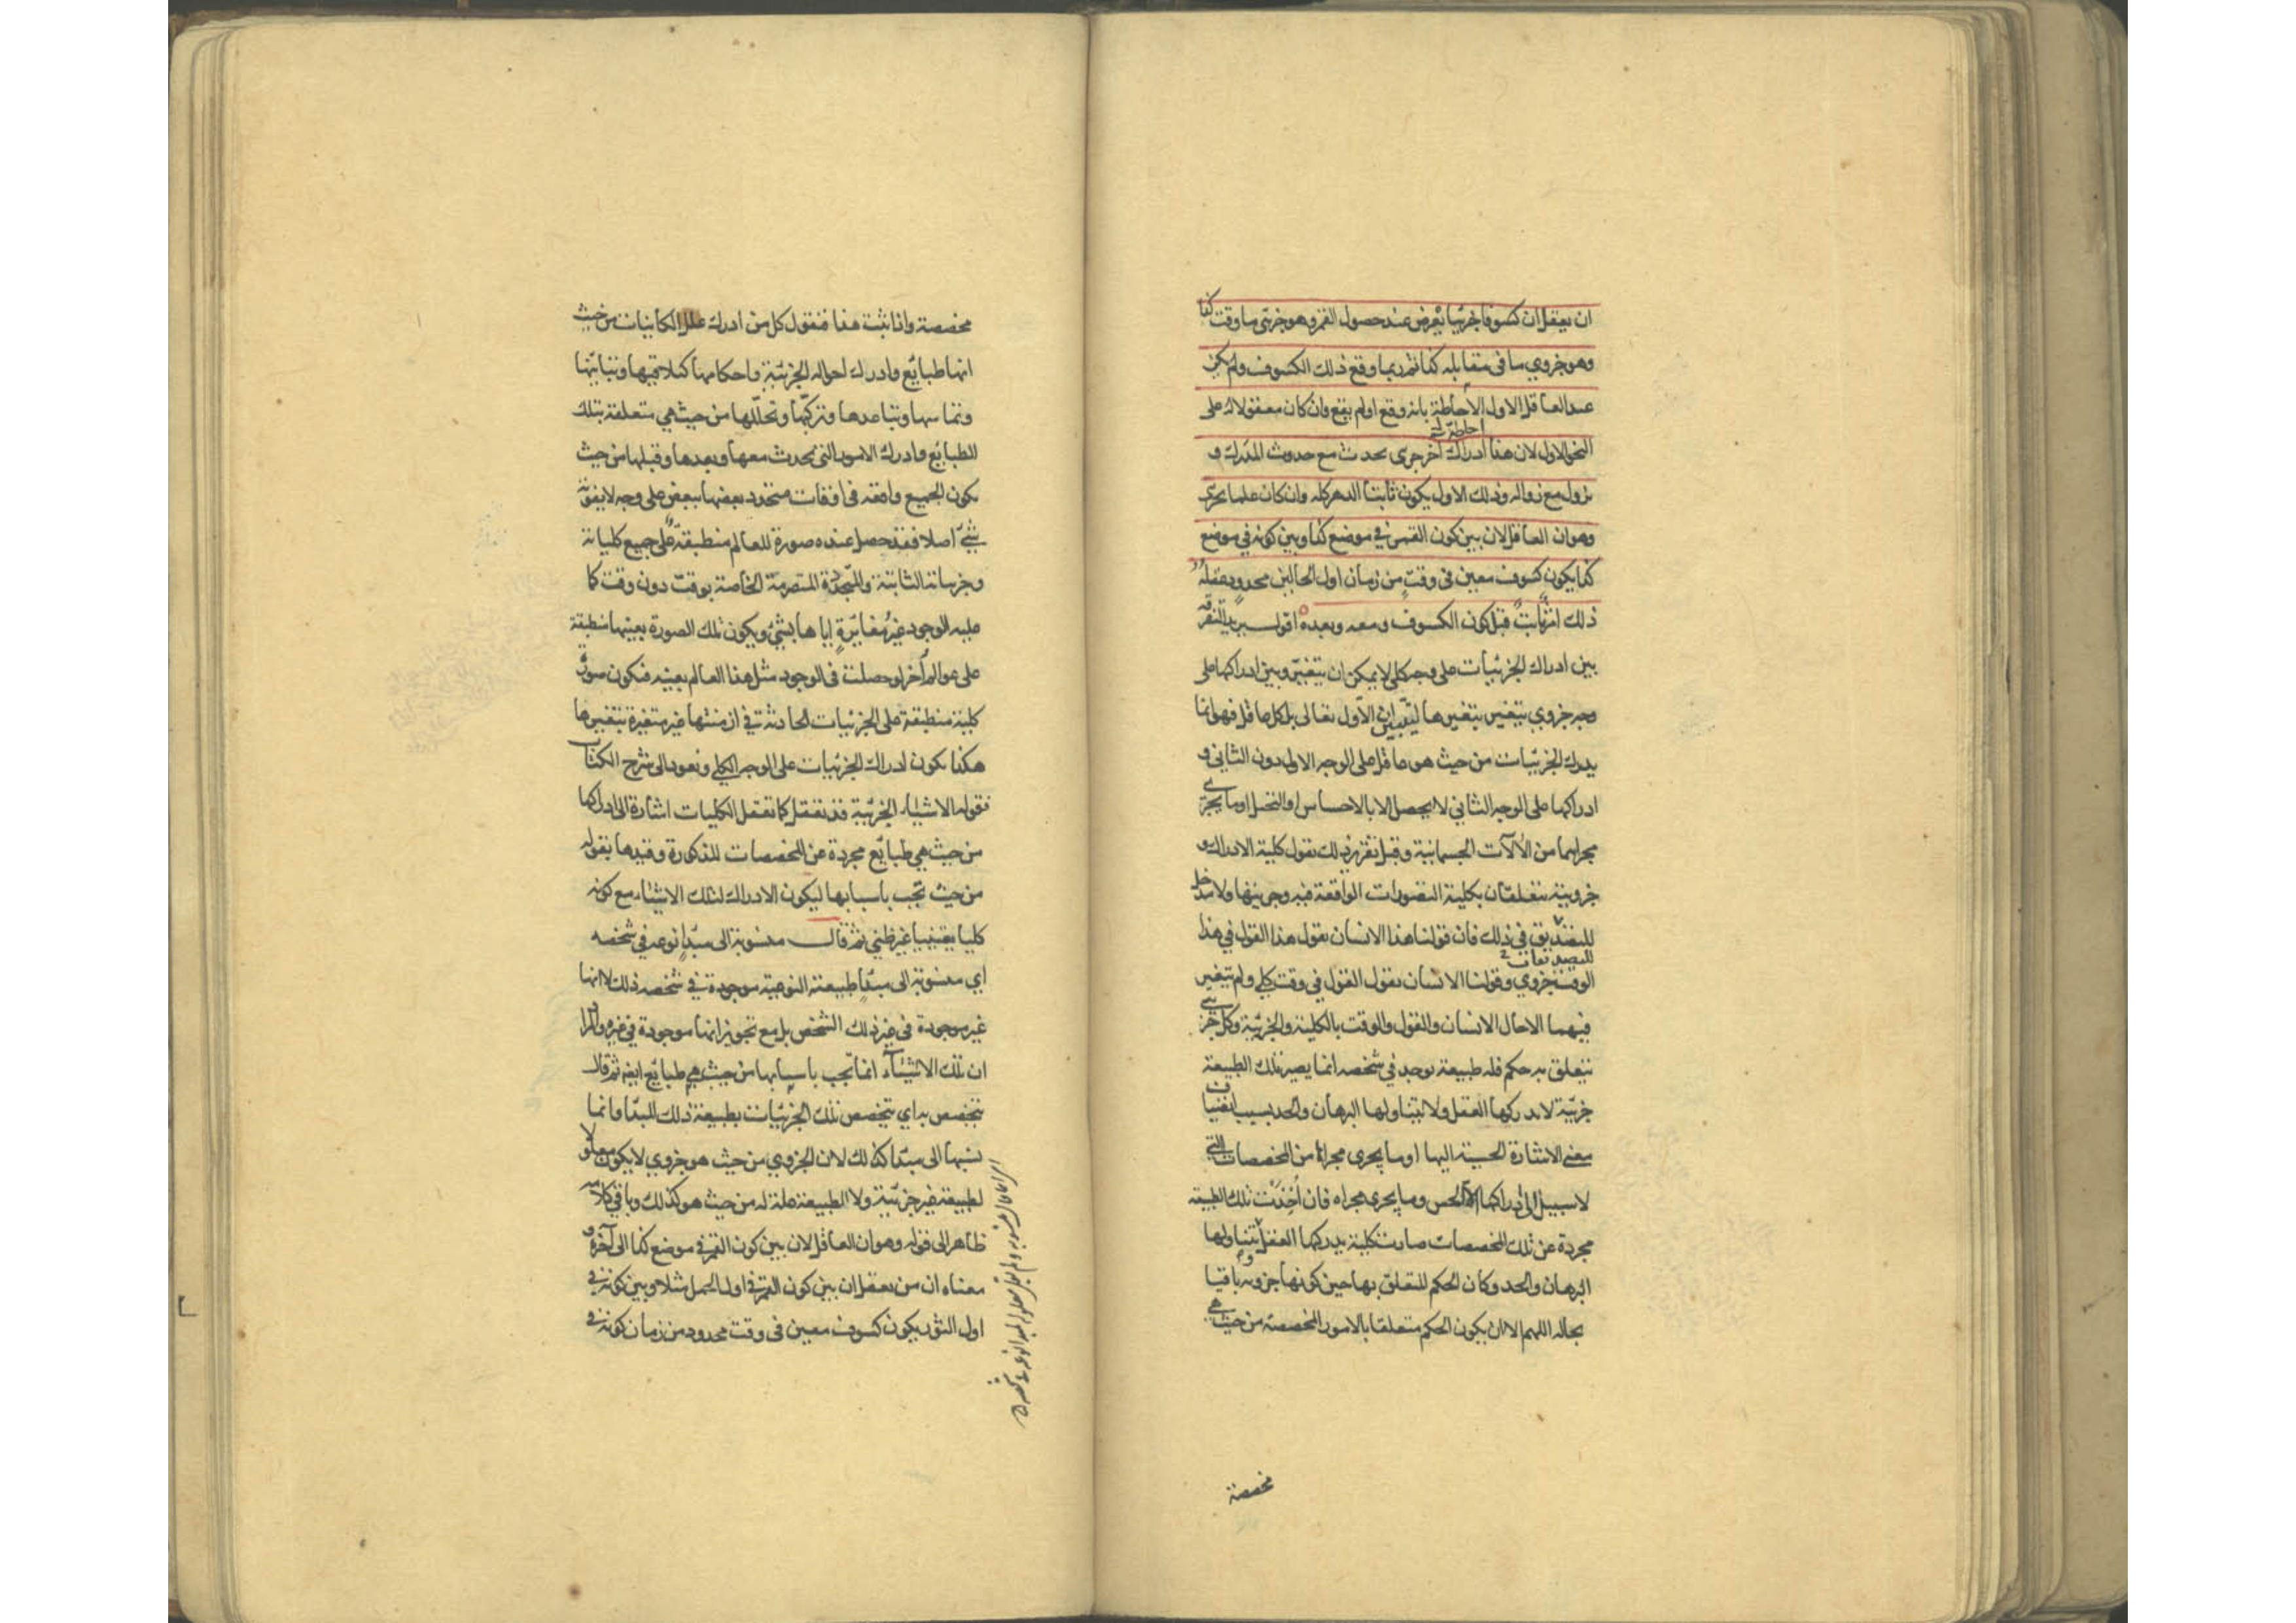 ان يعقل ان كسوفا جزئيا يعرض عند حصول القمر وهو جزئي ما وقت كذا
وهو جزوي ما في مقابلة كذا ثم ربما وقع ذلك الكسوف ولم يكن
عند العاقل الاول الاحاطة بانه وقع او لم يقع وان كان معقولا له على
احاطة
النحو الاول لان هذا ادراك آخر جزئ يحدث مع حدوث المدرك و
يزول مع زواله وذلك الاول يكون ثابتا الدهر كله وان كان علما بجزئ
وهو ان العاقل لان بين كون القمر في موضع كذا وبين كونه في موضع
كذا يكون كسوف معين في وقت من زمان اول الحالين محدود عقله
ذلك امر ثابت قبل كون الكسوف ومعه وبعده اقول يريد التفرقة
بين ادراك الجزئيات على وجه كلي لا يمكن ان يتغير وبين ادراكها على
وجه جزوي يتغير بتغيرها ليتبين ان الاول تعالى بل كل عاقل فهو انما
يدرك الجزئيات من حيث هو عاقل على الوجه الاول دون الثاني و
ادراكها على الوجه الثاني لا يحصل الا بالاحساس او التخيل او ما يجري
مجراهما من الآلات الجسمانية وقبل تقرير ذلك نقول كلية الادراك و
جزويته تتعلقان بكلية التصورات الواقعة فيه وجزويتها ولا مدخل
للتصديق في ذلك فان قولنا هذا الانسان يقول هذا القول في هذا
للتصديقات
الوقت جزوي وقولنا الانسان يقول القول في وقت كلي ولم يتغير
فيهما الا حال الانسان والقول والوقت بالكلية والجزئية وكل جزئي
يتعلق به حكم فله طبيعة توجد في شخصه انما يصير تلك الطبيعة
جزئية لا يدركها العقل ولا يتناولها البرهان والحد بسبب انضياف
معنى الاشارة الحسية اليها او ما يجرى مجراها من المخصصات التي
لا سبيل الى ادراكها الا الحس وما يجرى مجراه فان اخذت تلك الطبيعة
مجردة عن تلك المخصصات صارت كلية يدركها العقل يتناولها
البرهان والحد وكان الحكم المتعلق بها حين كونها جزوية باقيا
بحاله اللهم الا ان يكون الحكم متعلقا بالامور المخصصة من حيث هي
مخصصة
مخصصة واذا ثبت هذا فنقول كل من ادرك علل الكاينات من حيث
انها طبايع وادرك احوالها الجزئية واحكامها كتلاقيها وتباينها
وتماسها وتباعدها وتركبها وتحللها من حيث هي متعلقة بتلك
الطبايع وادرك الامور التي تحدث معها وبعدها وقبلها من حيث
يكون الجميع واقعة في اوقات متحدد بعضها ببعض على وجه لا يفوته
شئ اصلا فقد حصل عنده صورة للعالم منطبقة على جميع كلياته
وجزئياته الثابتة والمتجددة المتصرمة الخاصة بوقت دون وقت كما
عليه الوجود غير مغايرة اياها بشئ ويكون تلك الصورة بعينها منطبقة
على عوالم آخر لو حصلت في الوجود مثل هذا العالم بعينه فيكون صورة
كلية منطبقة على الجزئيات الحادثة في ازمنتها غير متغيرة بتغيرها
هكذا يكون ادراك الجزئيات على الوجه الكلي ونعود الى شرح الكتاب
فقوله الاشياء الجزئية قد تعقل كما تعقل الكليات اشارة الى ادراكها
من حيث هي طبايع مجردة عن المخصصات المذكورة وقيدها بقوله
من حيث تجب باسبابها ليكون الادراك لتلك الاشياء مع كونه
كليا يقينيا غير ظني ثم قال منسوبة الى مبدا نوعه في شخصه
اي منسوبة الى مبدا طبيعته النوعية موجودة في شخصه ذلك لا انها
غير موجودة في غير ذلك الشخص بل مع تجويز انها موجودة في غيره والمراد
ان تلك الاشياء انما تجب باسبابها من حيث هي طبايع ايضا ثم قال
تتخصص به اي يتخصص تلك الجزئيات بطبيعة ذلك المبدا وانما
نسبها الى مبدا كذلك لان الجزوي من حيث هو جزوي لا يكون معلولا
لطبيعة غير جزئية ولا الطبيعة علة له من حيث هو كذلك وباقي كلامه
ظاهر الى قوله وهو ان العاقل لان بين كون القمر في موضع كذا الى آخره و
معناه ان من يعقل ان بين كون القمر في اول الحمل مثلا وبين كونه في
اول الثور يكون كسوف معين في وقت محدود من زمان كونه في